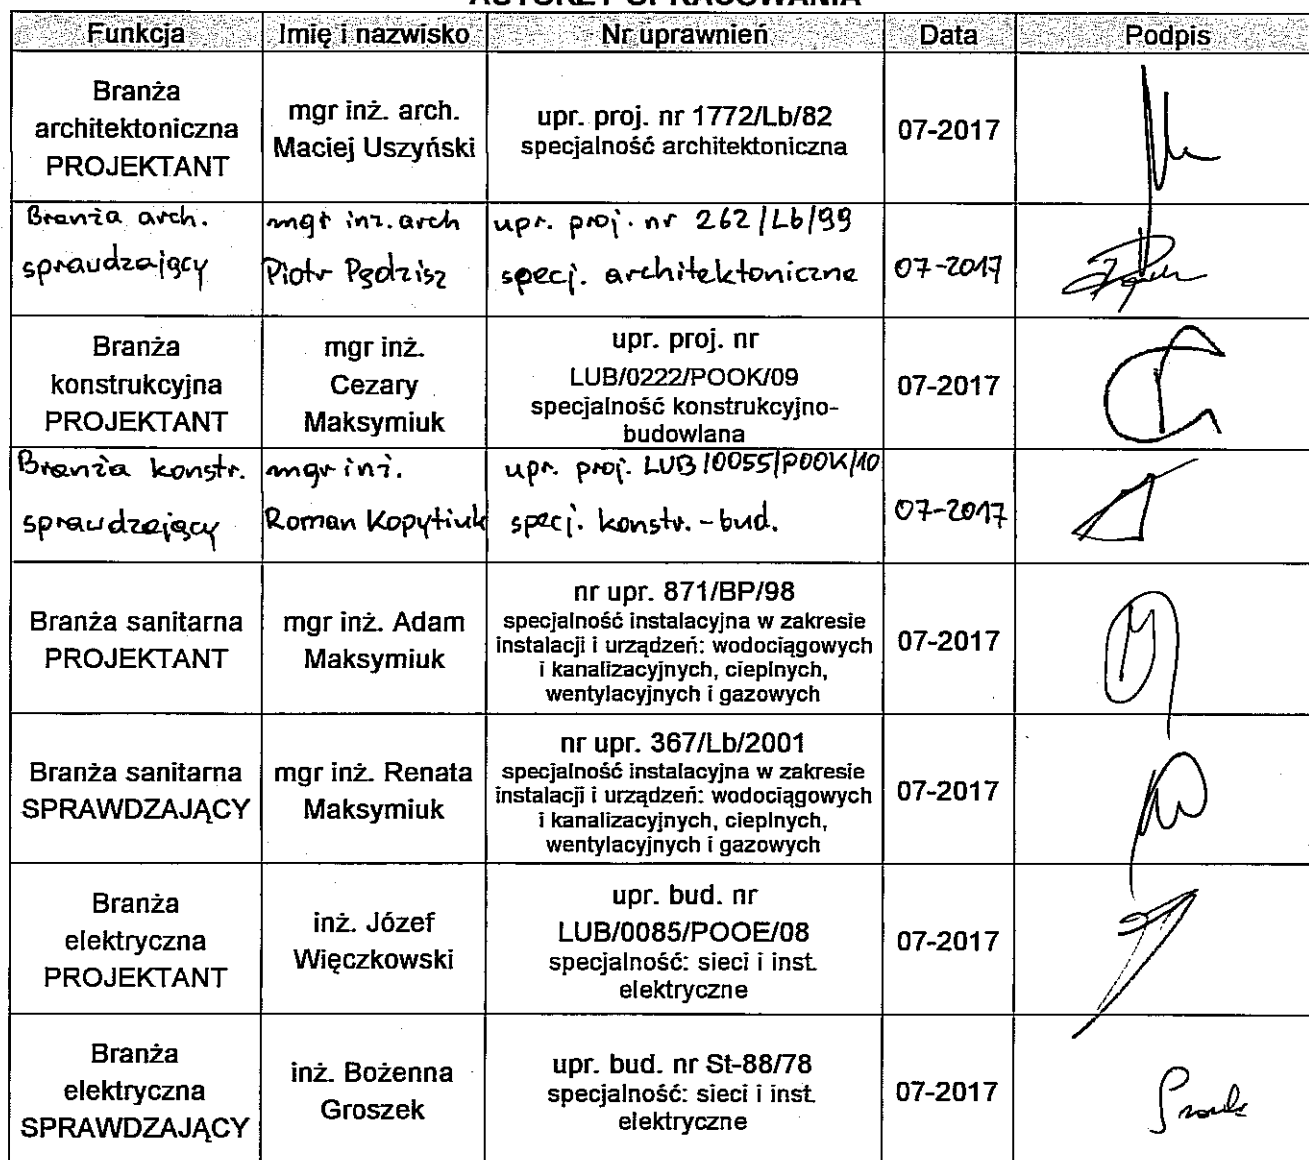 AUTORZY OPRACOWANIA
Funkcja Imię i nazwisko Nr uprawnień Data Podpis
Branża
architektoniczna
PROJEKTANT
mgr inż. arch.
Maciej Uszyński
upr. proj. nr 1772/Lb/82
specjalność architektoniczna
07-2017
Branża arch.
sprawdzający
mgr inż. arch
Piotr Pędzisz
upr. proj. nr 262/Lb/99
specj. architektoniczne
07-2017
Branża
konstrukcyjna
PROJEKTANT
mgr inż.
Cezary
Maksymiuk
upr. proj. nr
LUB/0222/POOK/09
specjalność konstrukcyjno-
budowlana
07-2017
Branża konstr.
sprawdzający
mgr inż.
Roman Kopytiuk
upr. proj. LUB/0055/POOK/10
specj. konstr.-bud.
07-2017
Branża sanitarna
PROJEKTANT
mgr inż. Adam
Maksymiuk
nr upr. 871/BP/98
specjalność instalacyjna w zakresie
instalacji i urządzeń: wodociągowych
i kanalizacyjnych, cieplnych,
wentylacyjnych i gazowych
07-2017
Branża sanitarna
SPRAWDZAJĄCY
mgr inż. Renata
Maksymiuk
nr upr. 367/Lb/2001
specjalność instalacyjna w zakresie
instalacji i urządzeń: wodociągowych
i kanalizacyjnych, cieplnych,
wentylacyjnych i gazowych
07-2017
Branża
elektryczna
PROJEKTANT
inż. Józef
Więczkowski
upr. bud. nr
LUB/0085/POOE/08
specjalność: sieci i inst.
elektryczne
07-2017
Branża
elektryczna
SPRAWDZAJĄCY
inż. Bożenna
Groszek
upr. bud. nr St-88/78
specjalność: sieci i inst.
elektryczne
07-2017